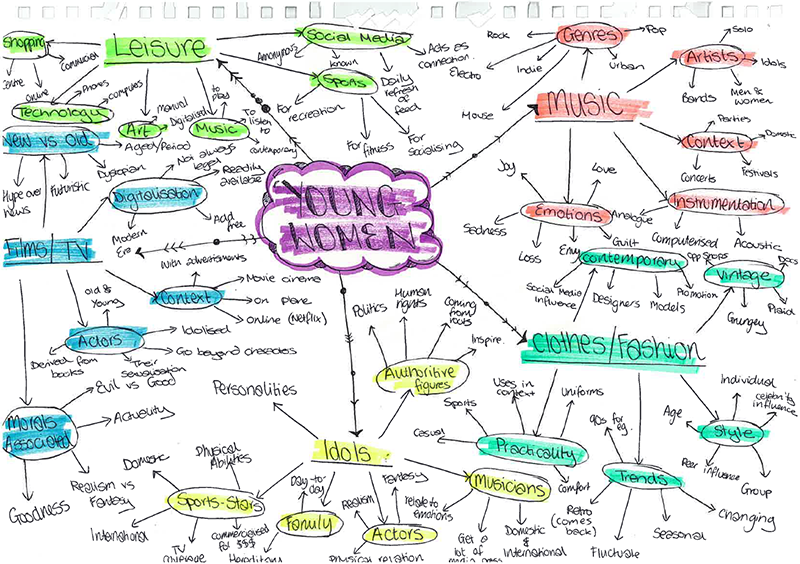 Shopping
Leisure
Social Media
Anonymous
known
Acts as
connection.
Daily
refresh
of
feed
Sports
For
recreation
For fitness
For
Socialising
online
Phones
Computers
Technology
Art
manual
Digitalised
Aged/Period
Music
to
play
To
listen
to
contemporary
Rock
Genres
Pop
Electro
Indie
urban
House
Artists
Solo
Idols
Bands
Men &
women
MUSIC
Context
Parties
Domestic
Concerts
Festivals
Instrumentation
Analogue
Computerised
Acoustic
Emotions
Joy
Love
Sadness
Loss
Envy
Guilt
YOUNG
WOMEN
New vs Old
Hype over
news
Futuristic
Dystopian
Digitalisation
Not always
legal
Readily
available
Modern
Era
Add
free
Films/TV
Context
With advertisments
Movie cinema
On plane
Online (Netflix)
Actors
Old &
Young
Idolised
Go beyond characters
Derived from
books
Their
sexualisation
Morals
Associated
Evil vs Good
Actuality
Realism vs
Fantasy
Goodness
Contemporary
Social Media
Influence
Designers
Models
Promotion
Pop Shops
Vintage
Decs
Plaid
Grungey
Clothes/Fashion
Practicality
Sports
Uses in
context
Uniforms
Casual
Comfort
Trends
90s for
eg.
Retro
(comes
back)
Fluctuate
Seasonal
Changing
Style
Age
Individual
celebrity
influence
Peer influence
Group
Idols
Personalities
Authoritive
figures
Politics
Human
rights
Coming
from
roots
Inspire.
Sports-Stars
Domestic
Physical
Abilities
International
TV
coverage
commercialised
for $$$
Family
Day-to-
day
Hereditary
Actors
Realism
Fantasy
Physical relation
Musicians
relate to
emotions
Get a
lot of
Domestic
&
International